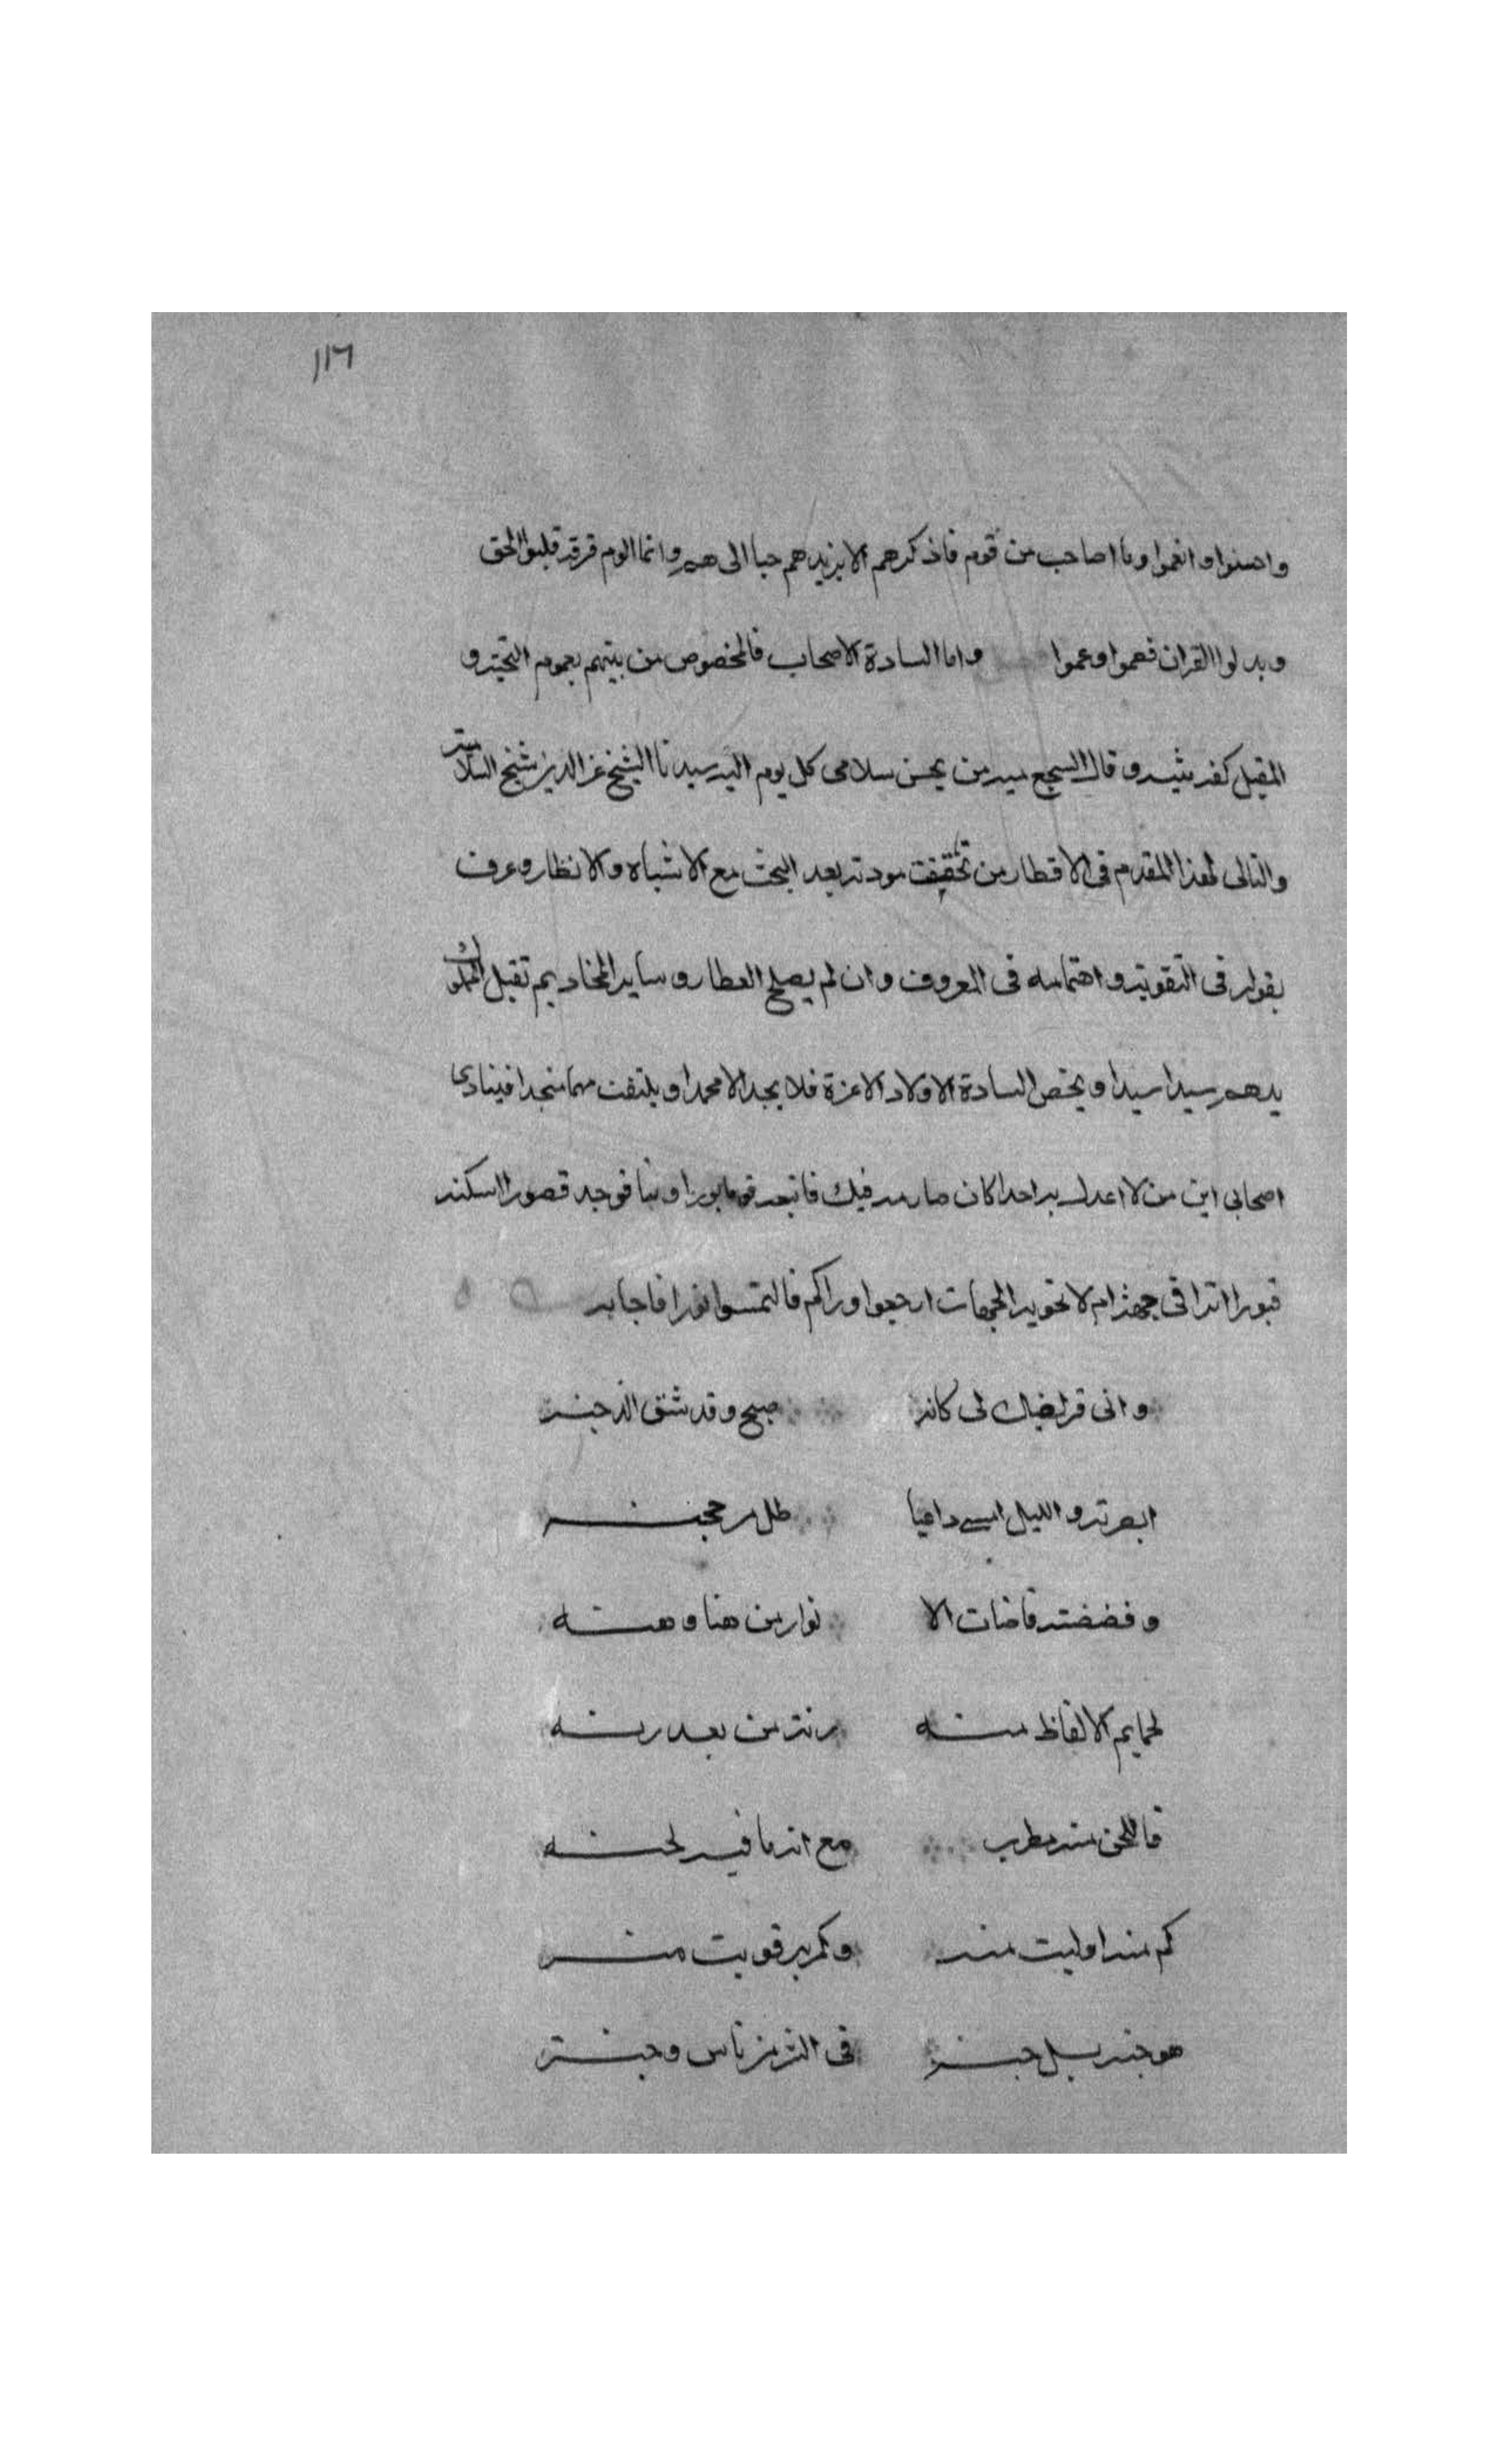 ١١٦
واحسنوا وانعموا وما اصاحب من قوم فاذكرهم الا يزيدهم حبا الى هم وانما الوم فرقة قلبوا الحق
وبدلوا القران فعموا وعموا واما السادة الاصحاب فالمخصوص من بينهم بعموم التحية و
المقبل كفه شيه وقال السجع سيه من يحسن سلامى كل يوم اليه سيدنا الشيخ عز الدين شيخ السلامية
والتالى لهذا المقدم فى الاقطار من تحققت مودته بعد البحث مع الاشباه والانظار وعرف
بقوله فى التقوية واهتمامه فى المعروف وان لم يصلح العطار وساير المخاديم تقبل المملوك
يدهم سيدا سيدا ويخص السادة الاولاد الاعزة فلا يجد الا محمدا ويلتفت مهما منجدا فينادى
اصحابى اين من لا اعدل به احدا كان صارمه فيك فاتبعه قوما بورا وبنا فوجد قصور السكنه
قبورا اترا فى جهة ام لا تحويه الجهات ارجعوا وراكم فالتمسوا نورا فاجابه
وانى قريضك لى كانه صبح وقد شق الدجنه
ابصرته والليل امسى داجيا
وفضضته فاضات الا نوار من هنا وهنه
لحمايم الالفاظ منه رنة من بعد رنه
فاللحن منه مطرب مع انه ما فيه لحنه
كم منه اوليت منه وكم به قويت منه
هو جنة بل جنة فى ناس وجنة